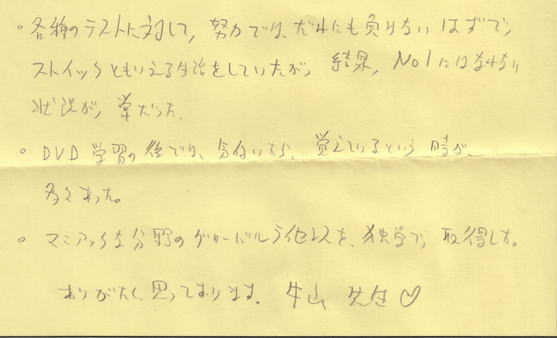 。各種のテストに対して、努力では、だれにも負けないはずで、
ストイックともいえる生活をしていたが、結果、No1にはなれない
状況が、常だった。
。DVD学習の後では、気付いたら、覚えているという時が、
多くあった。
。マニアックな分野のグローバルライセンスを、独学で、取得した。
ありがたく思っております。牛山先生♡